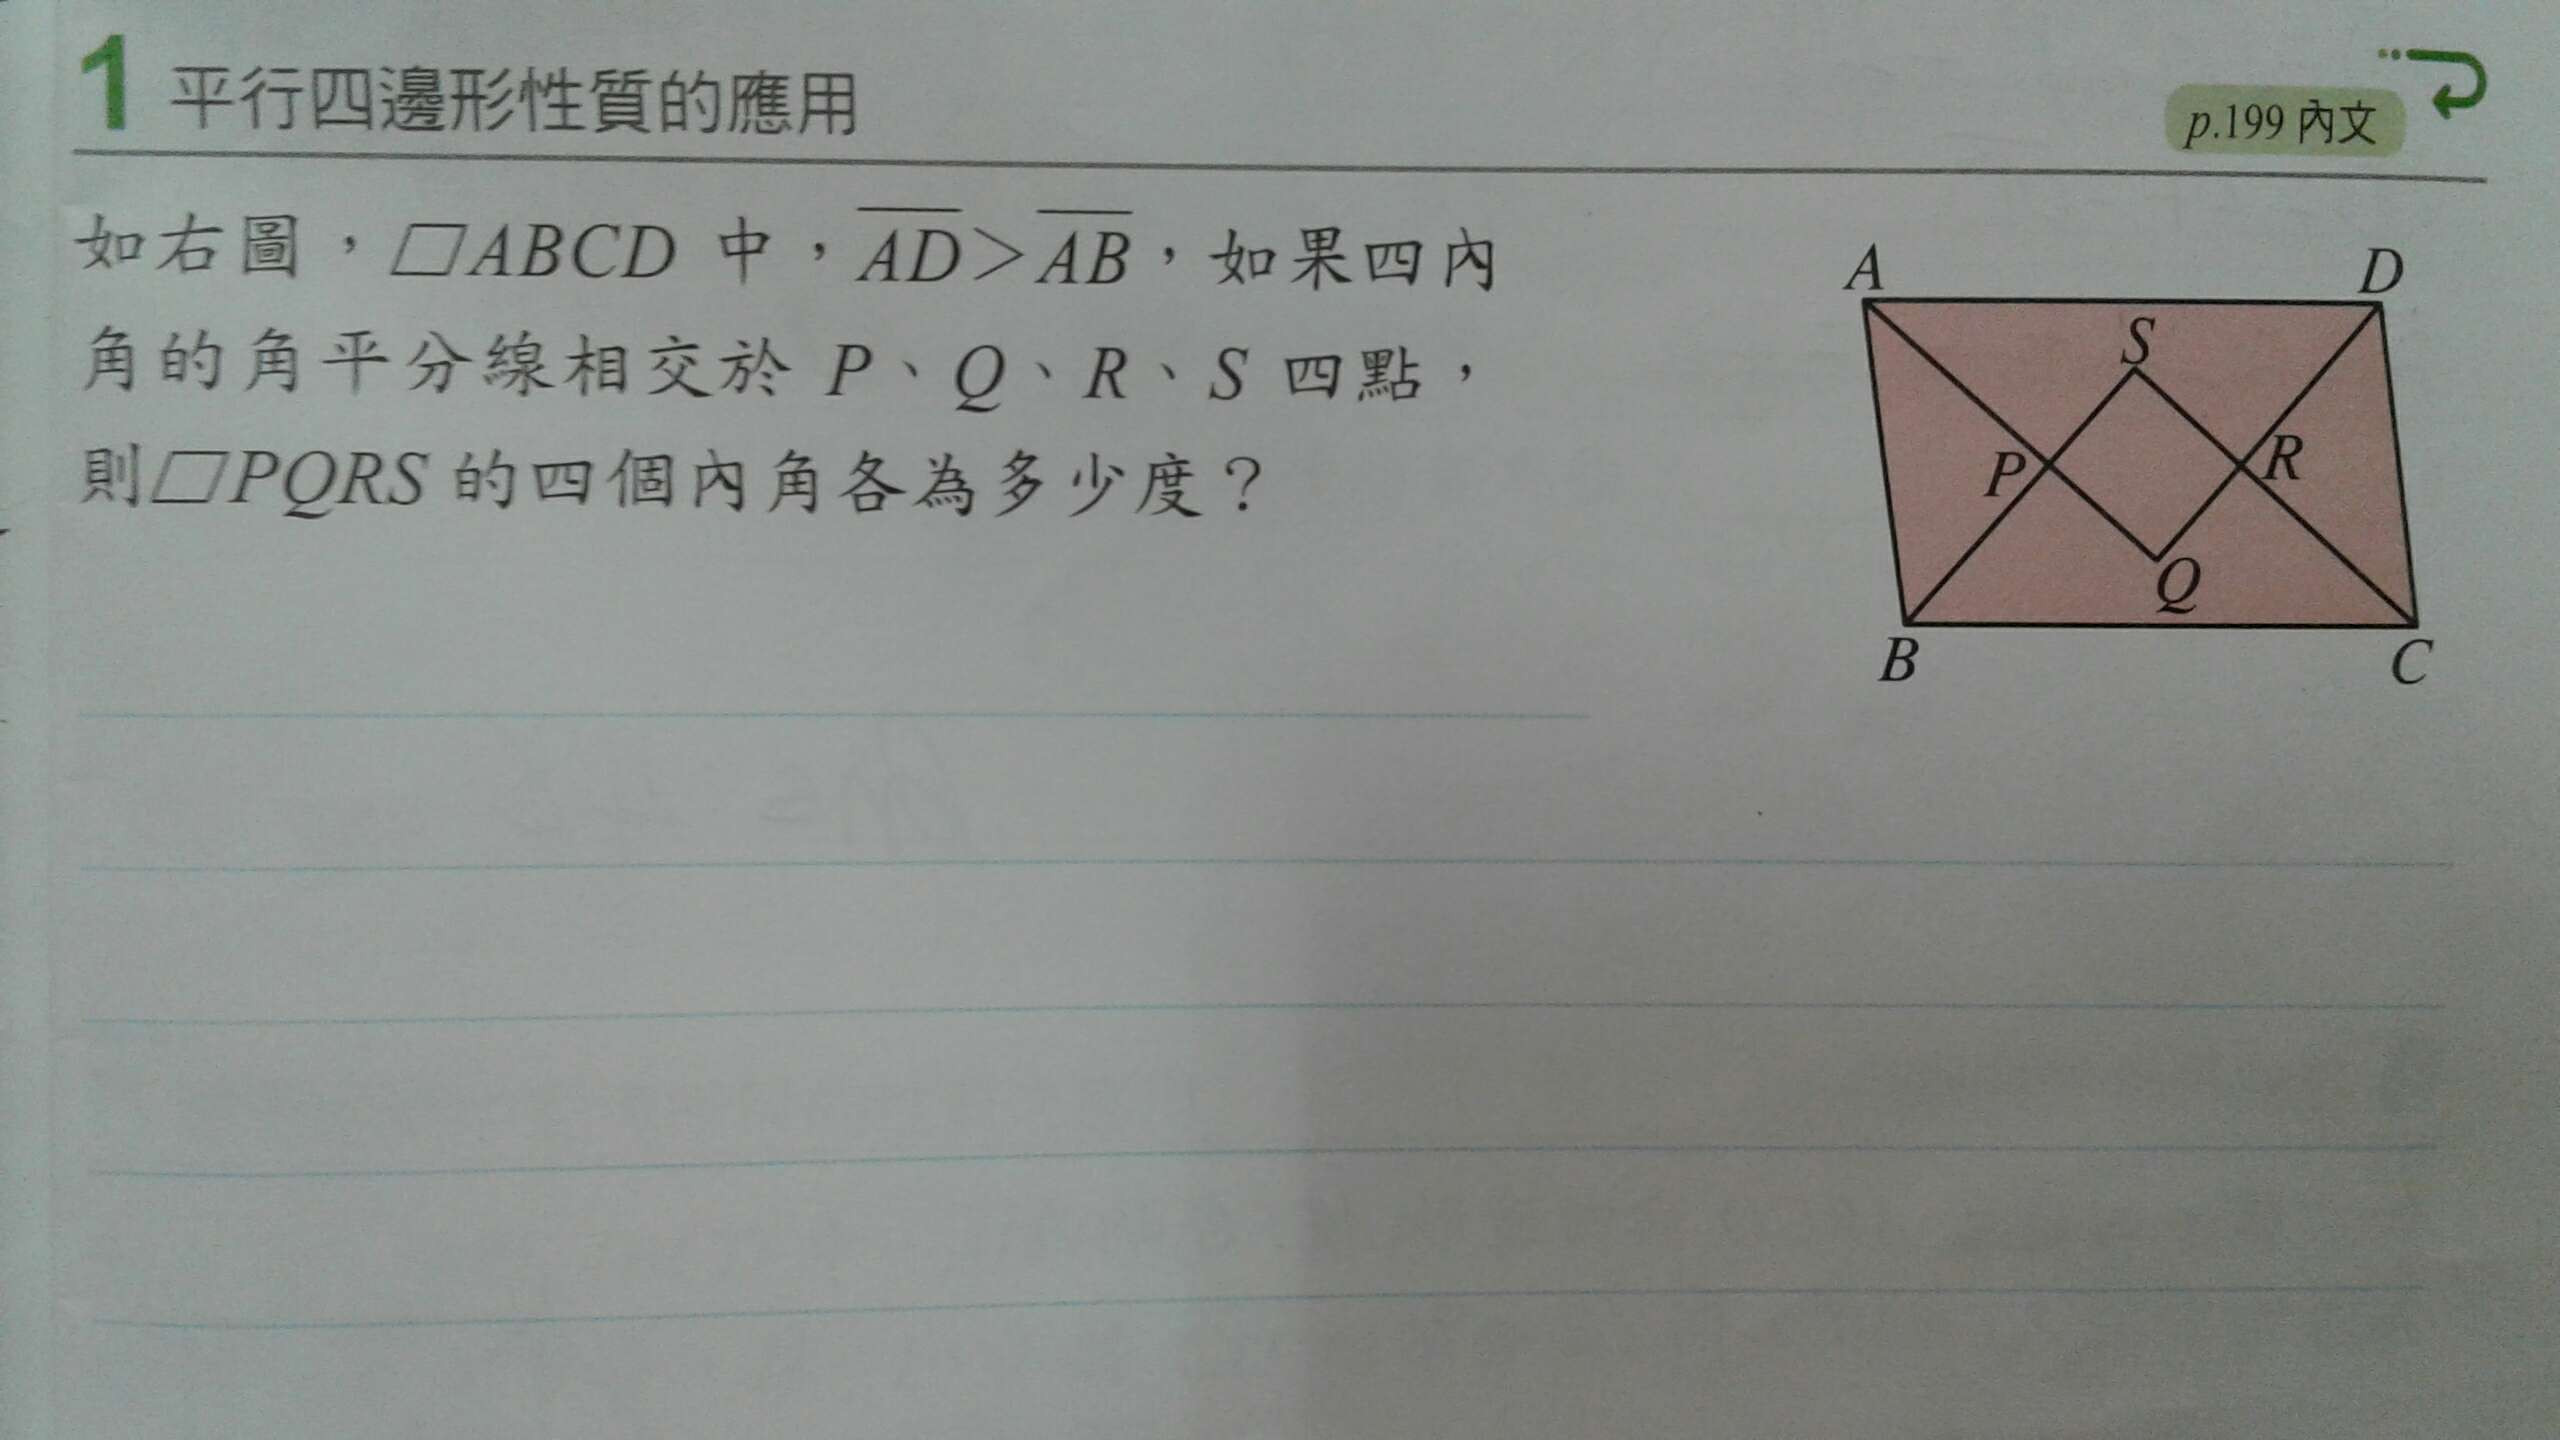 1 平行四邊形性質的應用
p.199 內文
如右圖，▱ABCD 中，AD＞AB，如果四內
角的角平分線相交於 P、Q、R、S 四點，
則▱PQRS 的四個內角各為多少度？
A
D
S
P
R
Q
B
C